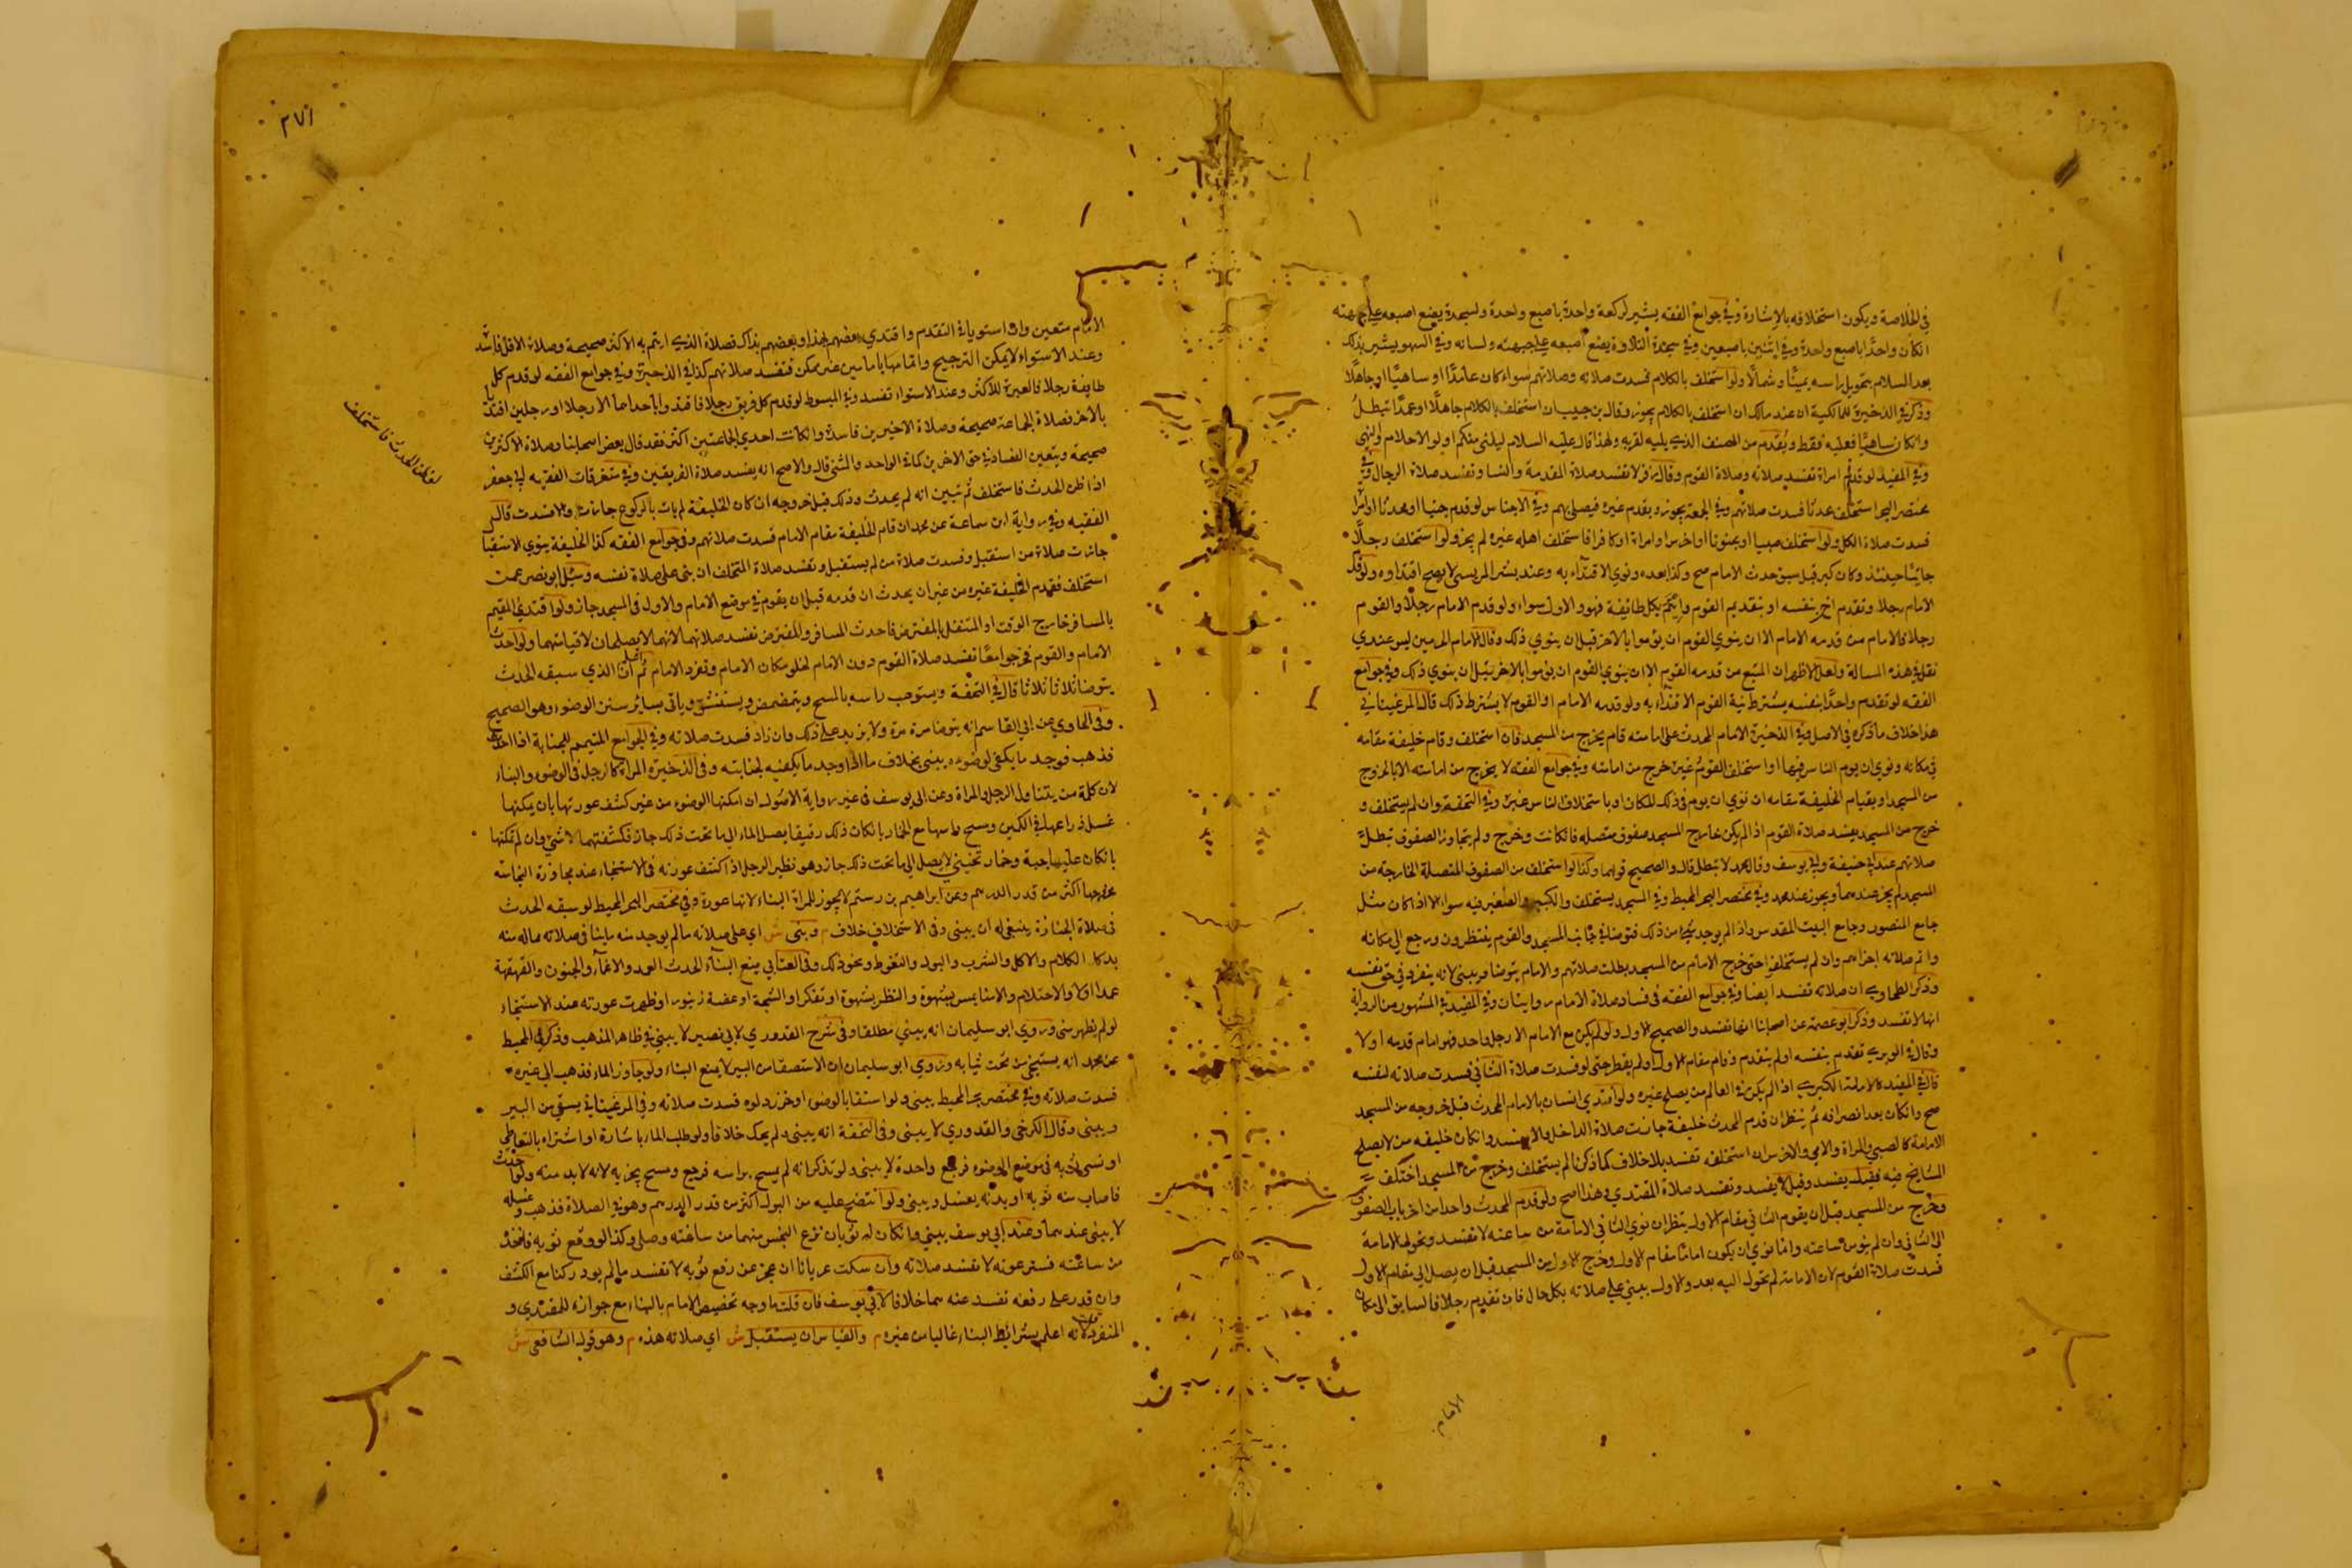 في الخلاصة ويكون استخلافه بالإشارة وفي جوامع الفقه يشير لركعة واحدة باصبع واحدة ولسجدة يضع اصبعه على جبهته
ان كان واحدًا باصبع واحدة وفي اثنين باصبعين وفي سجدة التلاوة يضع اصبعه على جبهته ولسانه وفي السهو يشير بذلك
بعد السلام بتحويل راسه يمينًا وشمالًا ولو استخلف بالكلام فسدت صلاته وصلاتهم سواء كان عامدًا او ساهيًا او جاهلًا
وذكر في الذخيرة للمالكية ان عند مالك ان استخلف بالكلام يجوز وقال بن حبيب ان استخلف بالكلام جاهلًا او عمدًا تبطل
وان كان ساهيًا فعليه فقط ويقدم من الصف الذي يليه لقربه ولهذا قال عليه السلام ليلني منكم اولو الاحلام والنهى
وفي المفيد لو قدم امراة تفسد صلاته وصلاة القوم وقال زفر لا تفسد صلاة المقدمة والنسا وتفسد صلاة الرجال وفي
مختصر البحر استخلف عدنا فسدت صلاتهم وفي الجمعة يجوز ويقدم غيره فيصلي بهم وفي الاجناس لو قدم جنبا او محدثا او امراة
فسدت صلاة الكل ولو استخلف صبيا او مجنونا او اخرس او امراة او كافرا فاستخلف اهله غيره لم يجز ولو استخلف رجلًا
جائيًا حينئذ وكان كبر قبل سبق حدث الامام صح وكذا بعده ونوي الاقتداء به وعند بشر المريسي لا يصح اقتداوه ولو قدم
الامام رجلا وتقدم اخر بنفسه او بتقديم القوم وائتم بكل طائفة فهو والاول سواء ولو قدم الامام رجلًا والقوم
رجلا فالامام من قدمه الامام الا ان ينوي القوم ان يؤموا بالاخر قبل ان ينوي ذلك وقال الامام الحرمين ليس عندي
نقل في هذه المسالة ولعل الاظهر ان المتبع من قدمه القوم الا ان ينوي القوم ان يؤموا بالاخر قبل ان ينوي ذلك وفي جوامع
الفقه لو تقدم واحدًا بنفسه يشترط نية القوم الاقتداء به ولو قدمه الامام او القوم لا يشترط ذلك قال المرغيناني في
هذا خلاف ما ذكره في الاصل وفي الذخيرة الامام المحدث على امامته قام يخرج من المسجد فان استخلف وقام خليفة مقامه
في مكانه ونوي ان يوم الناس فيها او استخلف القوم غيره خرج من امامته وفي جوامع الفقه لا يخرج من امامته الا بالخروج
من المسجد او بقيام الخليفة مقامه ان نوي ان يوم في ذلك المكان او باستخلاف الناس غيره وفي التحفة وان لم يستخلف و
خرج من المسجد يفسد صلاة القوم اذا لم يكن خارج المسجد صفوف متصله فان كانت وخرج ولم يتجاوز الصفوف تبطل
صلاتهم عند ابي حنيفة وابي يوسف وقال محمد لا تبطل قال والصحيح قولهما وكذا لو استخلف من الصفوف المتصلة الخارجة من
المسجد لم يجز عندهما ويجوز عند محمد وفي مختصر البحر المحيط وفي المسجد يستخلف والكبير والصغير فيه سواء الا اذا كان مثل
جامع المنصور وجامع البيت المقدس واذا لم يوجد شيء من ذلك فتوضا في جانب المسجد والقوم ينتظرون ورجع الى مكانه
واتم صلاته اجزاهم وان لم يستخلف حتى خرج الامام من المسجد بطلت صلاتهم والامام يتوضا ويبني لانه ينفرد في حق نفسه
وذكر الطحاوي ان صلاته تفسد ايضا وفي جوامع الفقه في فساد صلاة الامام روايتان وفي المفيد في المشهور من الرواية
انها لا تفسد وذكر ابو عصمة عن اصحابنا انها تفسد والصحيح الاول ولو لم يكن مع الامام الا رجل واحد فهو امام قدمه او لا
وقال في الوبري تقدم بنفسه او لم يتقدم وقام مقام الاول او لم يقم حتى لو فسدت صلاة الثاني فسدت صلاته لنفسه
صح وان كان بعد انصرافه ثم ينظر ان قدم المحدث خليفة جازت صلاة الداخل والا فسد وان كان خليفه من لا يصلح
الامامة كالصبي والمراة والامي والاخرس ان استخلفه تفسد بلا خلاف كما ذكرنا لم يستخلف وخرج من المسجد اختلف
المشايخ فيه فقيل يفسد وقيل لا يفسد وتفسد صلاة المقتدي وهذا اصح ولو قدم المحدث واحدا من اخر باب الصفوف
وخرج من المسجد قبل ان يقوم الثاني مقام الاول ينظر ان نوي الثاني الامامة من ساعته لا تفسد وتحولت الامامة
الى الثاني وان لم ينو من ساعته وانما نوي ان يكون امامًا مقام الاول وخرج الاول من المسجد قبل ان يصل الى مقام الاول
فسدت صلاة القوم لان الامامة لم تحول اليه بعد والاول يبني على صلاته بكل حال فان تقديم رجلا فالسابق الى مكان
الامام
٢٧١
الامام متعين وان استويا في التقدم واقتدي بعضهم بهذا وبعضهم بذاك فصلاة الذي ايتم به الاكثر صحيحة وصلاة الاقل فاسدة
وعند الاستواء لا يمكن الترجيح واتمامها بامامين غير ممكن فتفسد صلاتهم كذا في الذخيرة وفي جوامع الفقه لو قدم كل
طايفة رجلا فالعبرة للاكثر وعند الاستواء تفسد وفي المبسوط لو قدم كل فريق رجلا فاقتدوا باحدهما الا رجلا او رجلين اقتديا
بالاخر فصلاة الجماعة صحيحة وصلاة الاخيرين فاسدة وان كانت احدي الجماعتين اكثر فقد قال بعض اصحابنا وصلاة الاكثرين
صحيحة ويتعين الفساد في حق الاخرين كما في الواحد والمثنى قال والاصح انه يفسد صلاة الفريقين وفي متفرقات الفقيه ابي جعفر
اذا ظن الحدث فاستخلف ثم تبين انه لم يحدث وذلك قبل خروجه ان كان الخليفة لم يات بالركوع جازت والا فسدت قال
الفقيه وفي رواية ابن سماعة عن محمد ان قام الخليفة مقام الامام فسدت صلاتهم وفي جوامع الفقه كذا الخليفة ينوي الاستقبال
جازت صلاة من استقبل وفسدت صلاة من لم يستقبل وتفسد صلاة المتخلف ان بنى على صلاة نفسه وسئل ابو نصر عمن
استخلف فقدم الخليفة غيره من غير ان يحدث ان قدمه قبل ان يقوم في موضع الامام والاول في المسجد جاز ولو اقتدي المقيم
بالمسافر خارج الوقت او المتنفل بالمفترض فاحدث المسافر والمفترض تفسد صلاتهما لانهما لا يصلحان لاقياسهما ولو احدث
الامام والقوم فخرجوا معًا تفسد صلاة القوم دون الامام لخلو مكان الامام وتفرد الامام ثم ان الذي سبقه الحدث
يتوضا ثلاثا ثلاثا قال في التحفة ويستوعب راسه بالمسح ويتمضمض ويستنشق وياتي بساير سنن الوضوء وهو الصحيح
وفي الحاوي عن ابي القاسم انه يتوضا مرة مرة ولا يزيد على ذلك وان زاد فسدت صلاته وفي الجوامع المتيمم للجنابة اذا احدث
فذهب فوجد ما يكفي لوضوءه يبني بخلاف ما اذا وجد ما يكفيه لجنابته وفي الذخيرة المراة كالرجل في الوضوء والبناء
لان كلمة من يتناول الرجل والمراة وعن ابي يوسف في غير رواية الاصول ان امكنها الوضوء من غير كشف عورتها بان يمكنها
غسل ذراعها في الكمين ومسح راسها مع الخمار بان كان ذلك رقيقا يصل الماء الى ما تحت ذلك جاز فكشفتهما لا شيء وان لم تمكنها
بان كان عليها جبة وخمار ثخين لا يصل الى ما تحت ذلك جاز وهو نظير الرجل اذا كشف عورته في الاستنجاء عند مجاوزة النجاسة
مخرجها اكثر من قدر الدرهم وعن ابراهيم بن رستم لا يجوز للمراة البناء لانها عورة وفي مختصر البحر المحيط لو سبقه الحدث
في صلاة الجنازة ينبغي له ان يبني وفي الاستخلاف خلاف م وبنى ش اي على صلاته ما لم يوجد منه ما ينافي صلاته مما له منه
بد كالكلام والاكل والشرب والبول والتغوط ونحو ذلك وفي العتابي يمنع البناء الحدث العمد والاغماء والجنون والقهقهة
لو لم يظهر شي وروي ابو سليمان انه يبني مطلقا وفي شرح القدوري لابي نصير لا يبني في ظاهر المذهب وذكر في المحيط
عن محمد انه يستنجي من تحت ثيابه وروي ابو سليمان ان الاستسقا من البير لا يمنع البناء ولو جاوز الماء فذهب الى غيره
فسدت صلاته وفي مختصر بحر المحيط يبني ولو استقا بالوضو او خرز دلوه فسدت صلاته وفي المرغيناني يستقي من البير
ويبني وقال الكرخي والقدوري لا يبني وفي التحفة انه يبني ولم يحك خلافا ولو طلب الماء باشارة او اشتراه بالتعاطي
او نسي ثوبه في موضع الوضوء فرجع واحدة لا يبني ولو تذكر انه لم يمسح براسه فرجع ومسح يجزيه لانه لا بد منه ولو احدث
فاصاب منه ثوبه او بدنه يغسل ويبني ولو انتضح عليه من البول اكثر من قدر الدرهم وهو في الصلاة فذهب وغسله
لا يبني عندهما وعند ابي يوسف يبني وان كان له ثوبان نزع النجس منهما من ساعته وصلى وكذا لو وقع ثوبه فاخذ
من ساعته فستر عورته لا تفسد صلاته وان سكت عريانا ان عجز عن رفع ثوبه لا تفسد ما لم يود ركنا مع الكشف
وان قدر على رفعه تفسد عندهما خلافا لابي يوسف فان قلت ما وجه تخصيص الامام بالبناء مع جوازه للمقتدي و
المنفرد قلت لانه اعلم بشرائط البناء غالبا من غيره م والقياس ان يستقبل ش اي صلاته هذه م وهو قول الشافعي ش
لو ظن الحدث فاستخلف